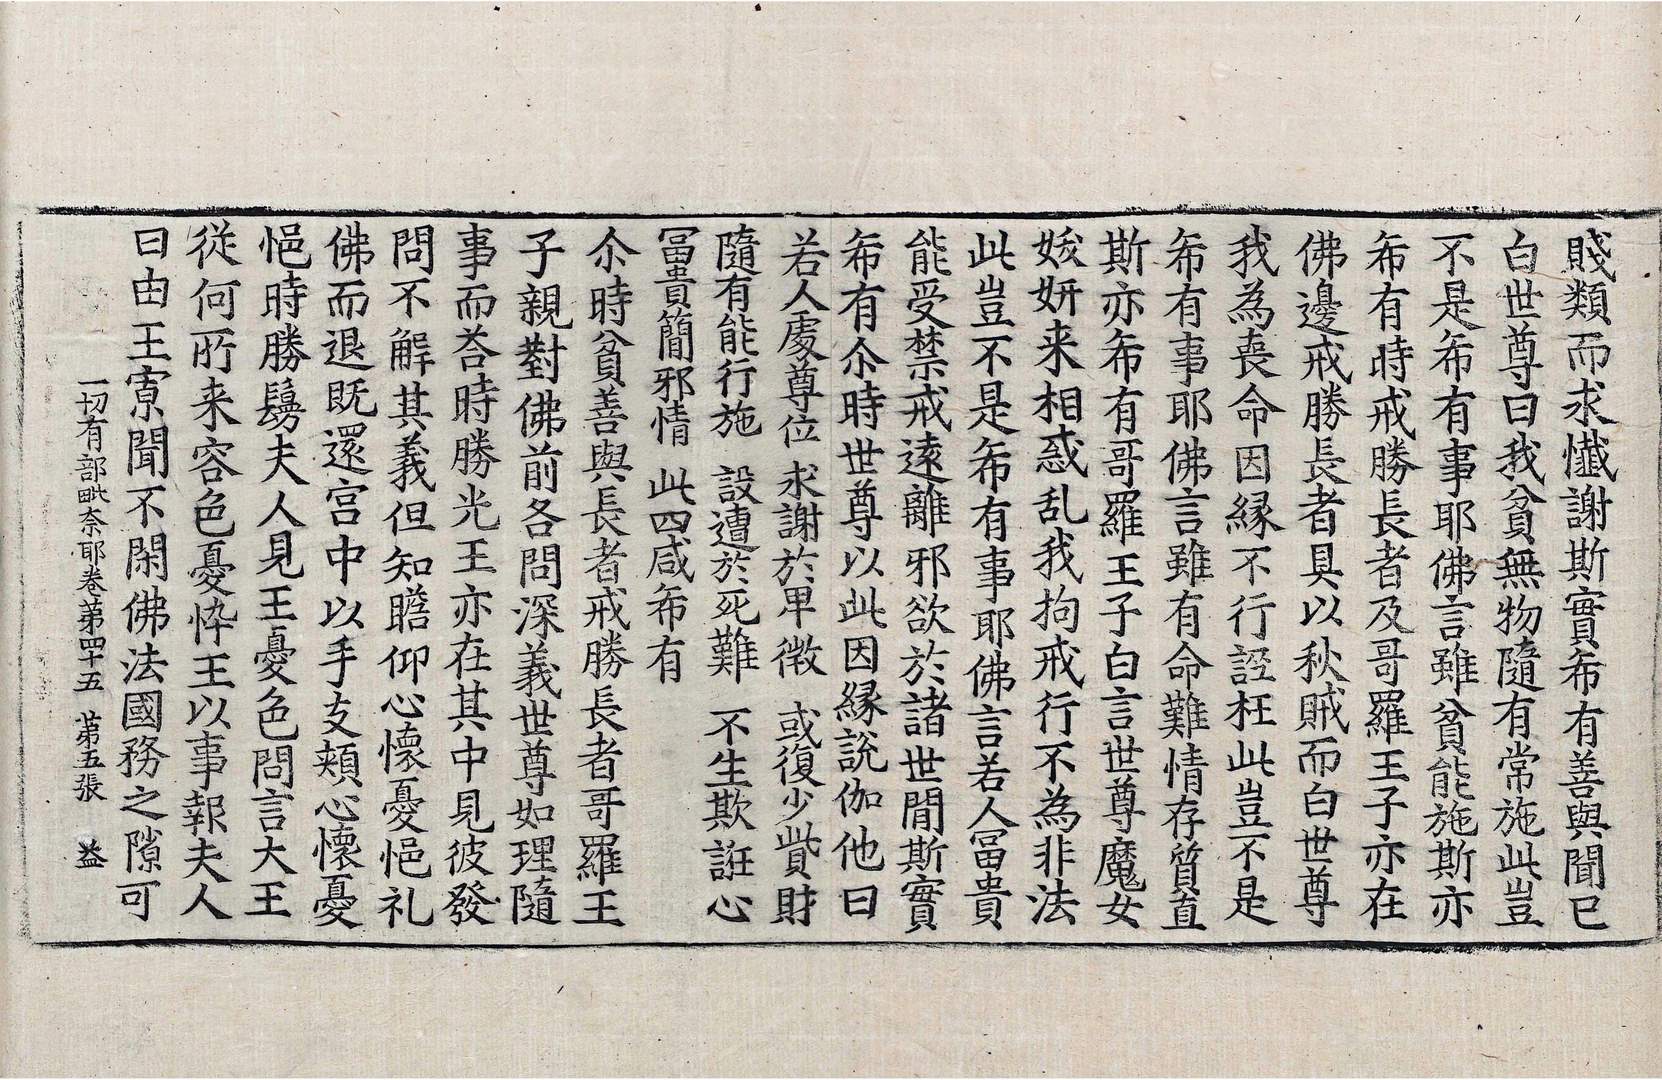 賤類而求懺謝斯實布有善與聞已
白世尊曰我貧無物隨有常施此豈
不是希有事耶佛言雖貧能施斯亦
希有時戒勝長者及哥羅王子亦在
佛邊戒勝長者具以秋賊而白世尊
我為喪命因緣不行誣枉此豈不是
希有事耶佛言雖有命難情存質直
斯亦希有哥羅王子白言世尊魔女
姟妍来相惑乱我拘戒行不為非法
此豈不是希有事耶佛言若人冨貴
能受禁戒遠離邪欲於諸世間斯實
希有尒時世尊以此因縁說伽他曰
若人處尊位 求謝於卑微 或復少貲財
隨有能行施 設遭於死難 不生欺誑心
冨貴簡邪情 此四咸希有
尒時貧善與長者戒勝長者哥羅王
子親對佛前各問深義世尊如理隨
事而荅時勝光王亦在其中見彼發
問不解其義但知瞻仰心懷憂悒礼
佛而退既還宫中以手支頰心懷憂
悒時勝鬘夫人見王憂色問言大王
從何所来容色憂悴王以事報夫人
曰由王寮聞不閑佛法國務之隙可
一切有部毗奈耶卷苐四十五 苐五張 益